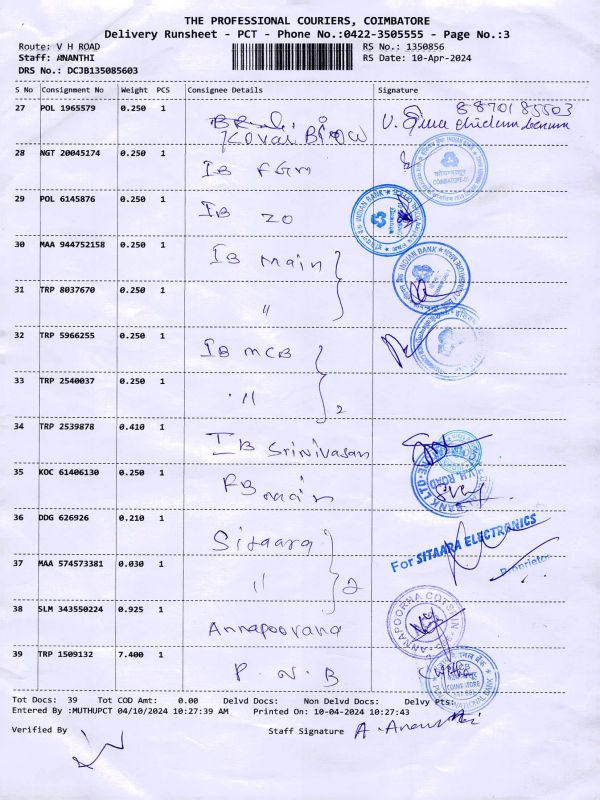 THE PROFESSIONAL COURIERS, COIMBATORE
Delivery Runsheet - PCT - Phone No.:0422-3505555 - Page No.:3
Route: V H ROAD
RS No.: 1350856
Staff: ANANTHI
RS Date: 10-Apr-2024
DRS No.: DCJB135085603
S No Consignment No Weight PCS Consignee Details Signature
27 POL 1965579 0.250 1 Kovai 8870185503
28 NGT 20045174 0.250 1 IB FGM
29 POL 6145876 0.250 1 IB ZO
30 MAA 944752158 0.250 1 IB Main
31 TRP 8037670 0.250 1 "
32 TRP 5966255 0.250 1 IB MCB
33 TRP 2540037 0.250 1 " 2
34 TRP 2539878 0.410 1 IB Srinivasan
35 KOC 61406130 0.250 1 main
36 DDG 626926 0.210 1 Sitaara For SITAARA ELECTRONICS
37 MAA 574573381 0.030 1 " 2 Proprietor
38 SLM 343550224 0.925 1 Annapoorana
39 TRP 1509132 7.400 1 P.N.B
Tot Docs: 39 Tot COD Amt: 0.00 Delvd Docs: Non Delvd Docs: Delvy Pts:
Entered By :MUTHUPCT 04/10/2024 10:27:39 AM Printed On: 10-04-2024 10:27:43
Verified By
Staff Signature